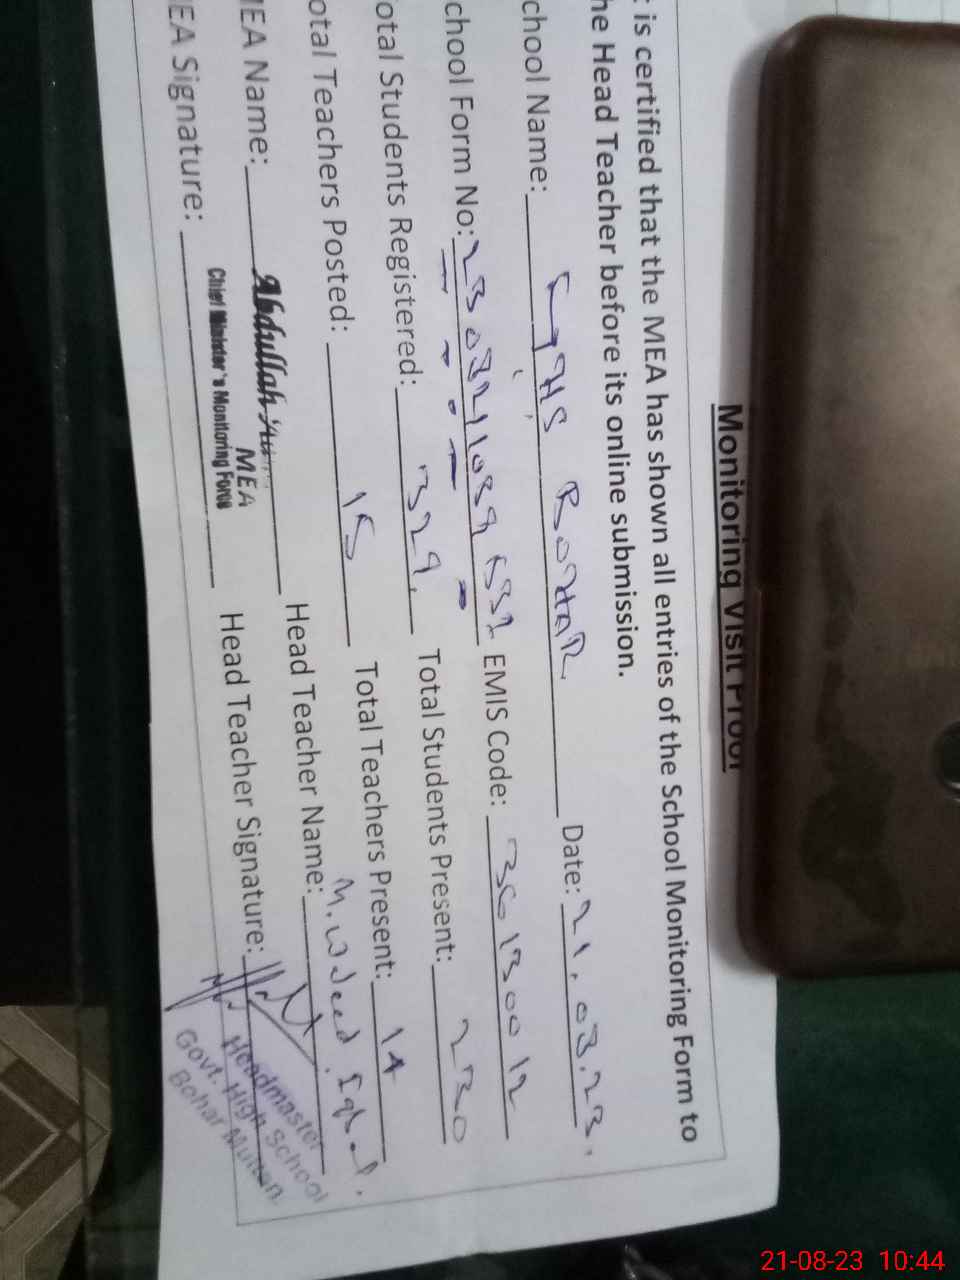 Monitoring Visit Proof
t is certified that the MEA has shown all entries of the School Monitoring Form to
he Head Teacher before its online submission.
chool Name: GHS BOHAR Date: 21.08.23.
chool Form No: EMIS Code: 36130012
otal Students Registered: 329. Total Students Present: 230
otal Teachers Posted: 15 Total Teachers Present: 14
MEA Name: Abdullah Head Teacher Name: M. Waleed Iqbal.
MEA
Chief Minister's Monitoring Force
EA Signature: Head Teacher Signature:
Headmaster
Govt. High School
Bohar Multan.
21-08-23 10:44